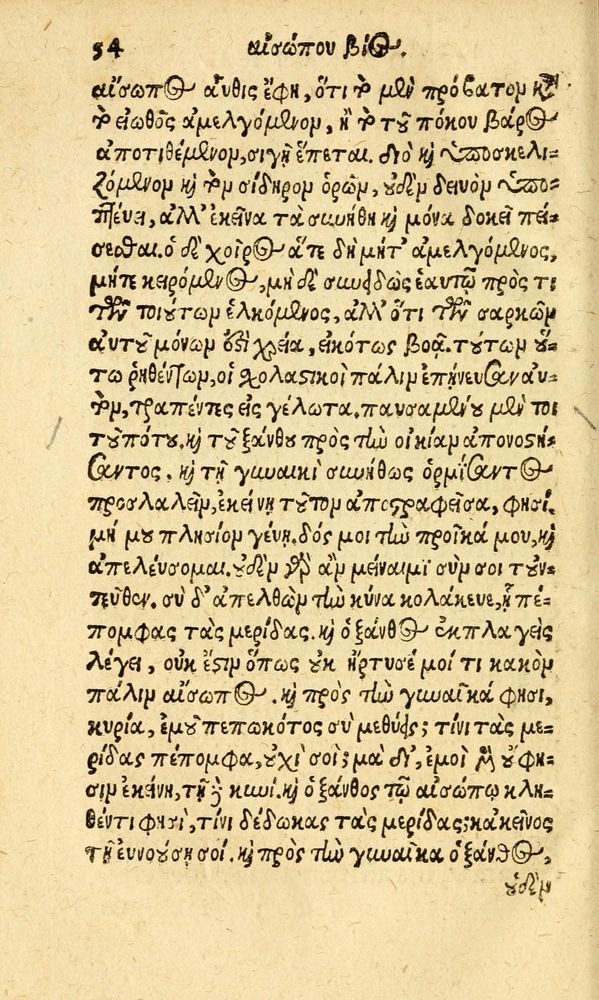 54 αἰσώπου βίος.
αἴσωπος αὖθις ἔφη, ὅτι τὸ μὲν πρόβατον καὶ
τὸ εἰωθὸς ἀμελγόμενον, ἢ τὸ τοῦ πόκου βάρος
ἀποτιθέμενον, σιγῇ ἕπεται. διὸ καὶ ὑποσκελι-
ζόμενον καὶ τὸν σίδηρον ὁρῶν, οὐδὲν δεινὸν ὑπο-
πτεύει, ἀλλ' ἐκεῖνα τὰ συνήθη καὶ μόνα δοκεῖ πεί-
σεσθαι. ὁ δὲ χοῖρος ἅτε δὴ μήτ' ἀμελγόμενος,
μήτε κειρόμενος, μὴ δὲ συνειδὼς ἑαυτῷ πρός τι
τῶν τοιούτων ἑλκόμενος, ἀλλ' ὅτι τῶν σαρκῶν
αὐτοῦ μόνων ἐστὶ χρεία, εἰκότως βοᾷ. τούτων οὕ-
τω ῥηθέντων, οἱ σχολαστικοὶ πάλιν ἐπῄνευσαν αὐ-
τὸν, τραπέντες εἰς γέλωτα. παυσαμένου μέντοι
τοῦ πότου, καὶ τοῦ ξάνθου πρὸς τὴν οἰκίαν ἀπονοστή-
σαντος, καὶ τῇ γυναικὶ συνήθως ὁρμήσαντος
προσλαλεῖν, ἐκείνη τοῦτον ἀποστραφεῖσα, φησί.
μή μου πλησίον γένῃ. δός μοι τὴν προῖκά μου, καὶ
ἀπελεύσομαι. οὐδὲν γὰρ ἂν μείναιμι σὺν σοι τοὐν-
τεῦθεν. σὺ δ' ἀπελθὼν τὴν κύνα κολάκευε, ᾗ πέ-
πομφας τὰς μερίδας. καὶ ὁ ξάνθος ἐκπλαγεὶς
λέγει, οὐκ ἔστιν ὅπως οὐκ ἤρτυσέ μοί τι κακὸν
πάλιν αἴσωπος. καὶ πρὸς τὴν γυναῖκά φησι,
κυρία, ἐμοῦ πεπωκότος σὺ μεθύεις; τίνι τὰς με-
ρίδας πέπομφα, οὐχὶ σοί; μὰ δί', ἐμοὶ μὲν οὔ φη-
σιν ἐκείνη, τῇ δὲ κυνί. καὶ ὁ ξάνθος τῷ αἰσώπῳ κλη-
θέντι φησὶ, τίνι δέδωκας τὰς μερίδας; κἀκεῖνος
τῇ εὐνοούσῃ σοί. καὶ πρὸς τὴν γυναῖκα ὁ ξάνθος,
οὐδὲν